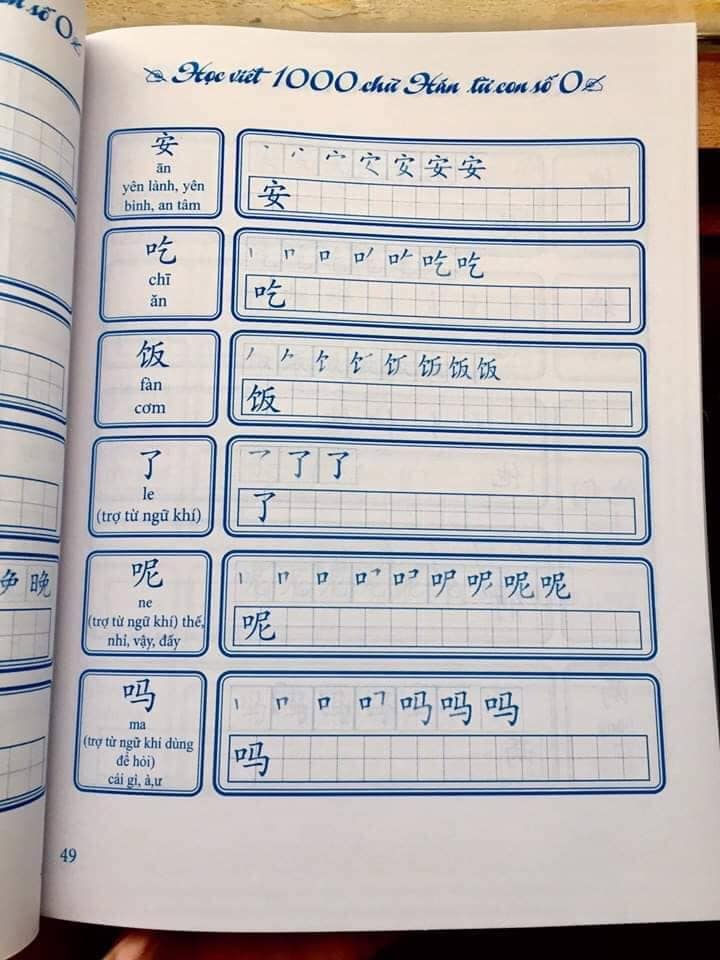 con số 0
Học viết 1000 chữ Hán từ con số 0
安
ān
yên lành, yên
bình, an tâm
丶 丷 宀 安 安 安
安
吃
chī
ăn
丨 口 吃 吃
吃
饭
fàn
cơm
丿 𠂉 饣 饭 饭
饭
了
le
(trợ từ ngữ khí)
乛 了 了
了
呢
ne
(trợ từ ngữ khí) thế,
nhỉ, vậy, đấy
丨 口 呢 呢
呢
吗
ma
(trợ từ ngữ khí dùng
để hỏi)
cái gì, à,ư
丨 口 吗 吗 吗
吗
晚
49